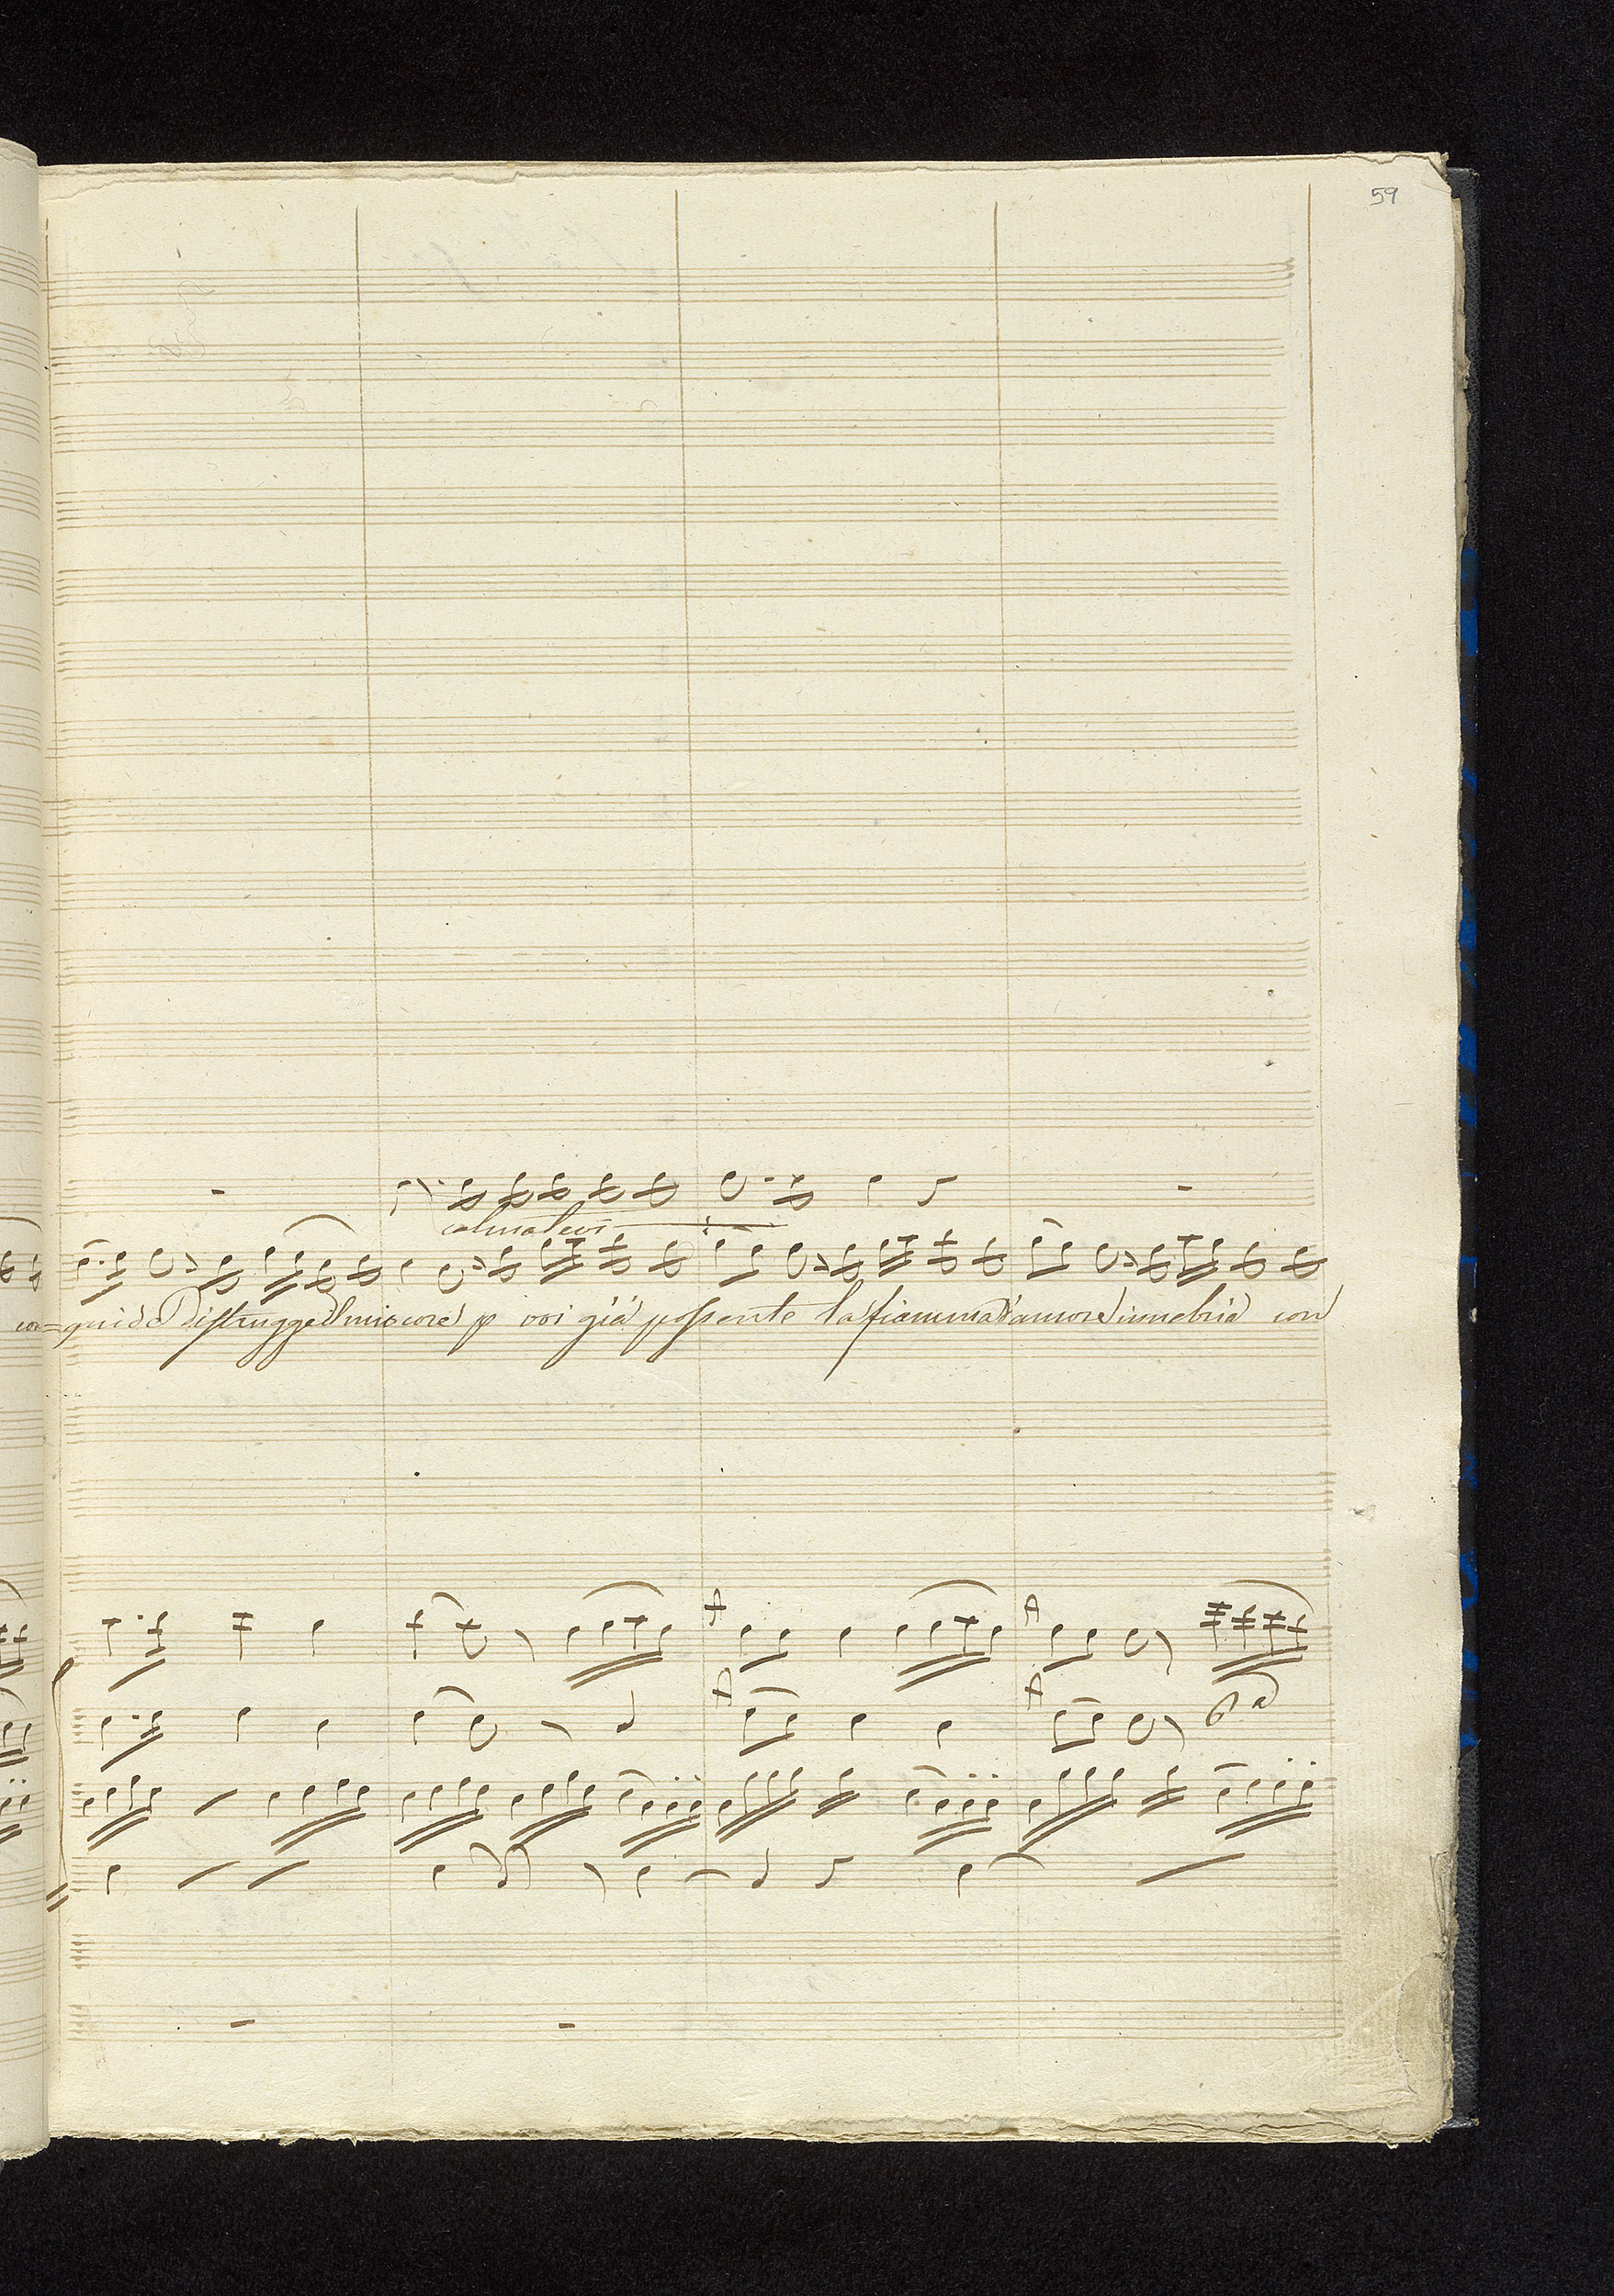 59
calmatevi
con=quide distrugge il mio core p voi già possente la fiamma d'amore innebria con